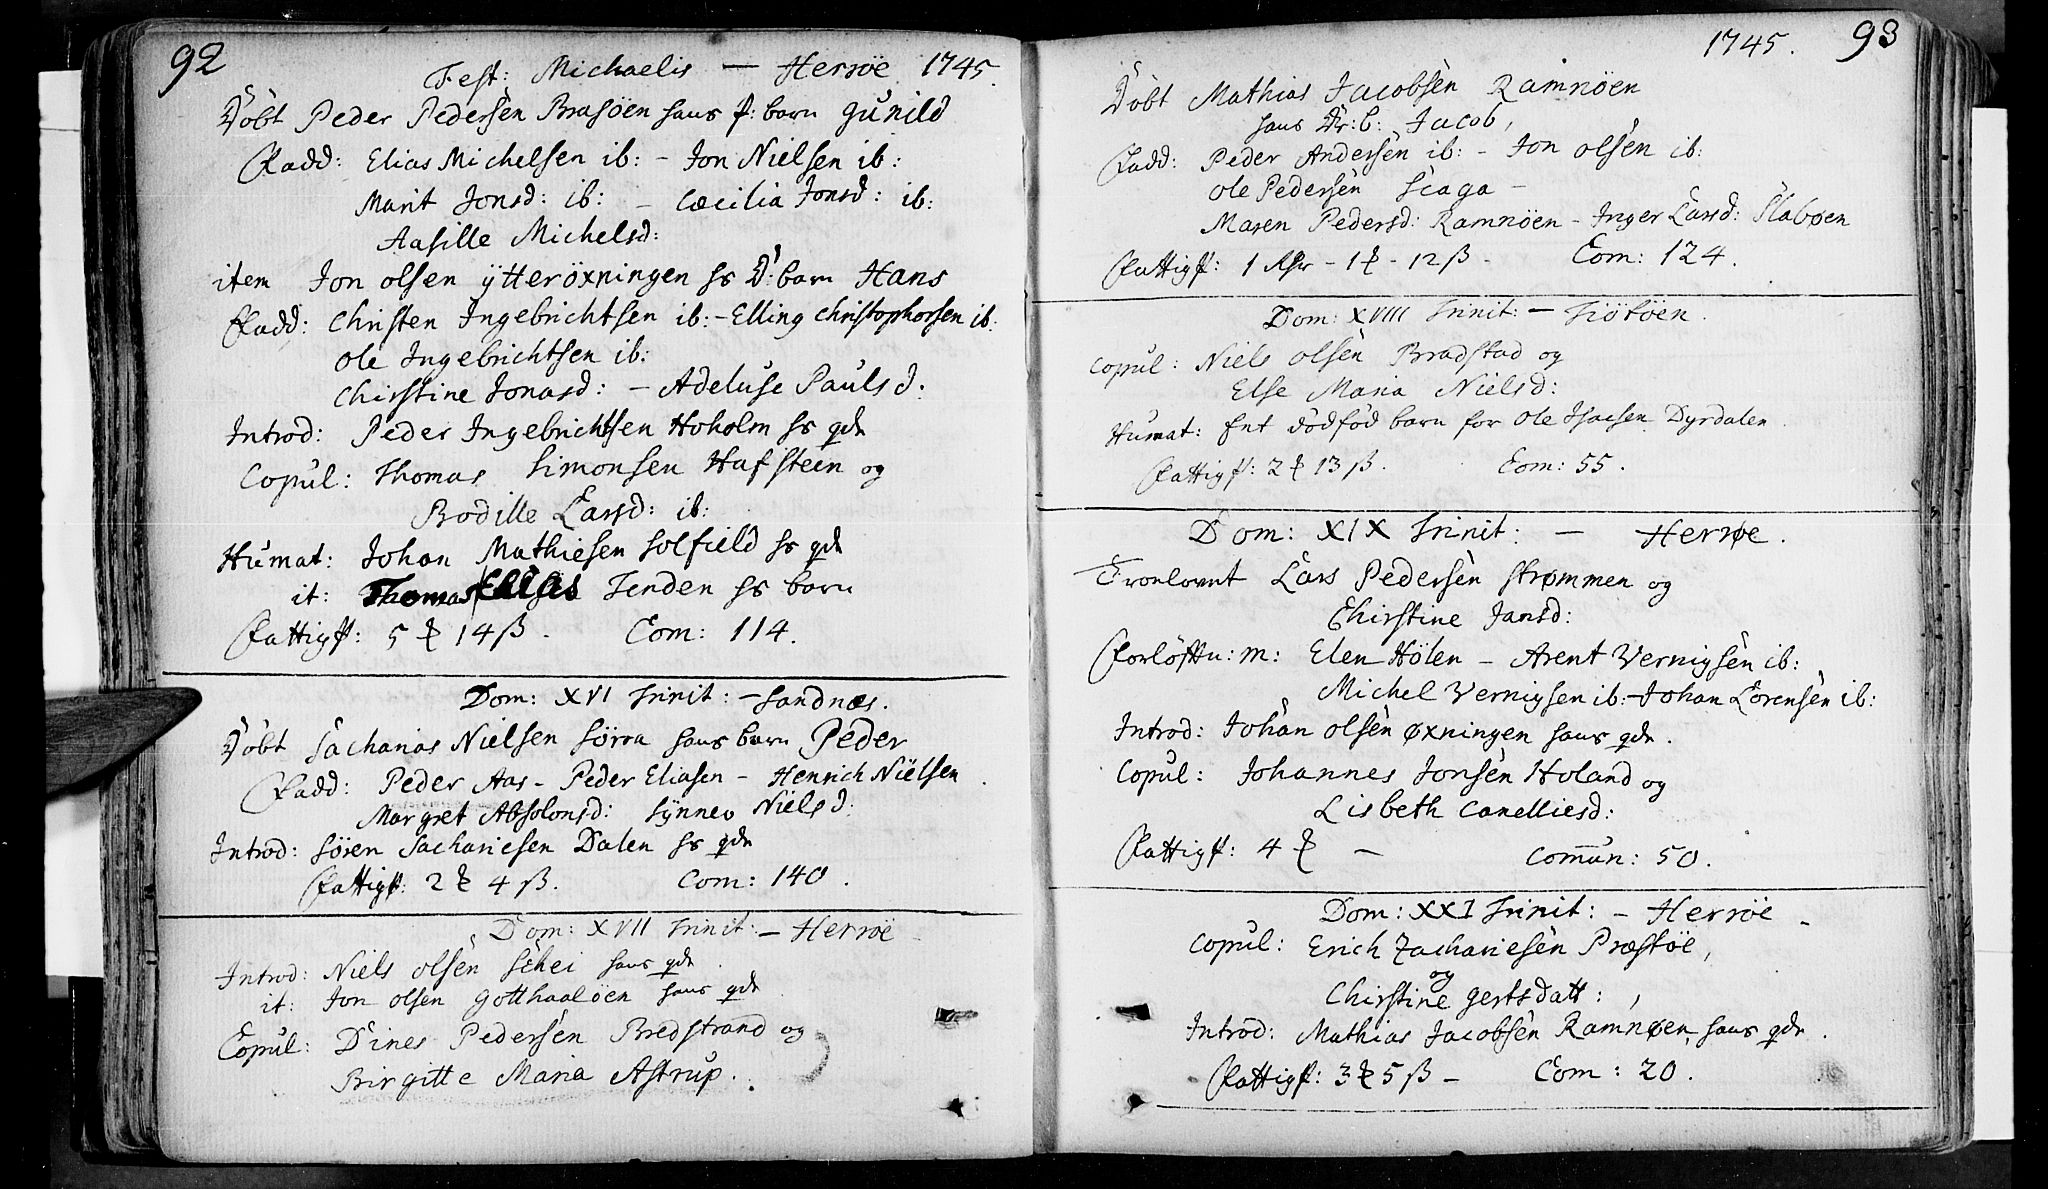 92
Fest: Michaelis — Herröe 1745.
Döbt Peder Pedersen Brasöen hans p: barn Gunild
Fadd: Elias Michelsen ib: – Jon Nielsen ib:
Marit Jonsd: ib: – Cæcilia Jonsd: ib:
Aasille Michelsd:
item Jon olsen ÿtteröxningen hs D: barn Hans
Fadd: Christen Ingebrichtsen ib: – Elling Christophersen ib:
Ole Ingebrichtsen ib:
Christine Jonasd: – Adeluse Paulsd:
Introd: Peder Ingebrichtsen Hoholm hs qde
Copul: Thomas Simonsen Hafsteen og
Bodille Larsd: ib:
Humat: Johan Mathiesen Solfield hs qde
it: Thomas Elias Tenden hs barn
Fattigp: 5 ₰ 14 ß. Com: 114.
Dom: XVI Trinit: – Sandnæs.
Döbt Sacharias Nielsen Sörra hans barn Peder
Fadd: Peder Aas – Peder Eliasen – Henrich Nielsen
Margret Absolonsd: Synnev Nielsd:
Introd: Sören Sachariesen Dalen hs qde
Fattigp: 2 ₰ 4 ß. Com: 140.
Dom: XVII Trinit: – Herröe
Introd: Niels olsen Schei hans qde
it: Jon olsen Gotthaalöen hans qde
Copul: Dines Pedersen Bredstrand og
Birgitte Maria Astrup.
1745. 93
Döbt Mathias Jacobsen Ramnöen
hans Dr: b: Jacob,
Fadd: Peder Andersen ib: – Jon olsen ib:
ole Pedersen Scaga –
Maren Pedersd: Ramnöen – Inger Larsd: Slabøen
Fattigp: 1 Rdr – 1 ₰ – 12 ß – Com: 124.
Dom: XVIII Trinit: – Tiötöen.
Copul: Niels olsen Bradstad og
Else Maria Nielsd:
Humat: Ent dödföd barn for Ole Isacsen Dyrdalen
Fattigp: 2 ₰ 13 ß. Com: 55.
Dom: XIX Trinit: – Herrøe.
Tronlovet Lars Pedersen Strømmen og
Christine Jansd:
Forlöftn: m: Elen Hölen – Arent Vernigsen ib:
Michel Vernigsen ib: – Johan Lorensen ib:
Introd: Johan olsen øxningen hans qde.
Copul: Johannes Jonsen Holand og
Lisbeth Canelliesd:
Fattigp: 4 ₰ – Comun: 50.
Dom: XXI Trinit: – Herröe –
Copul: Erich Zachariesen Præstöe,
og
Christine Gertsdatt: ,
Introd: Mathias Jacobsen Ramnøen, hans qde.
Fattigp: 3 ₰ 5 ß – Com: 20.